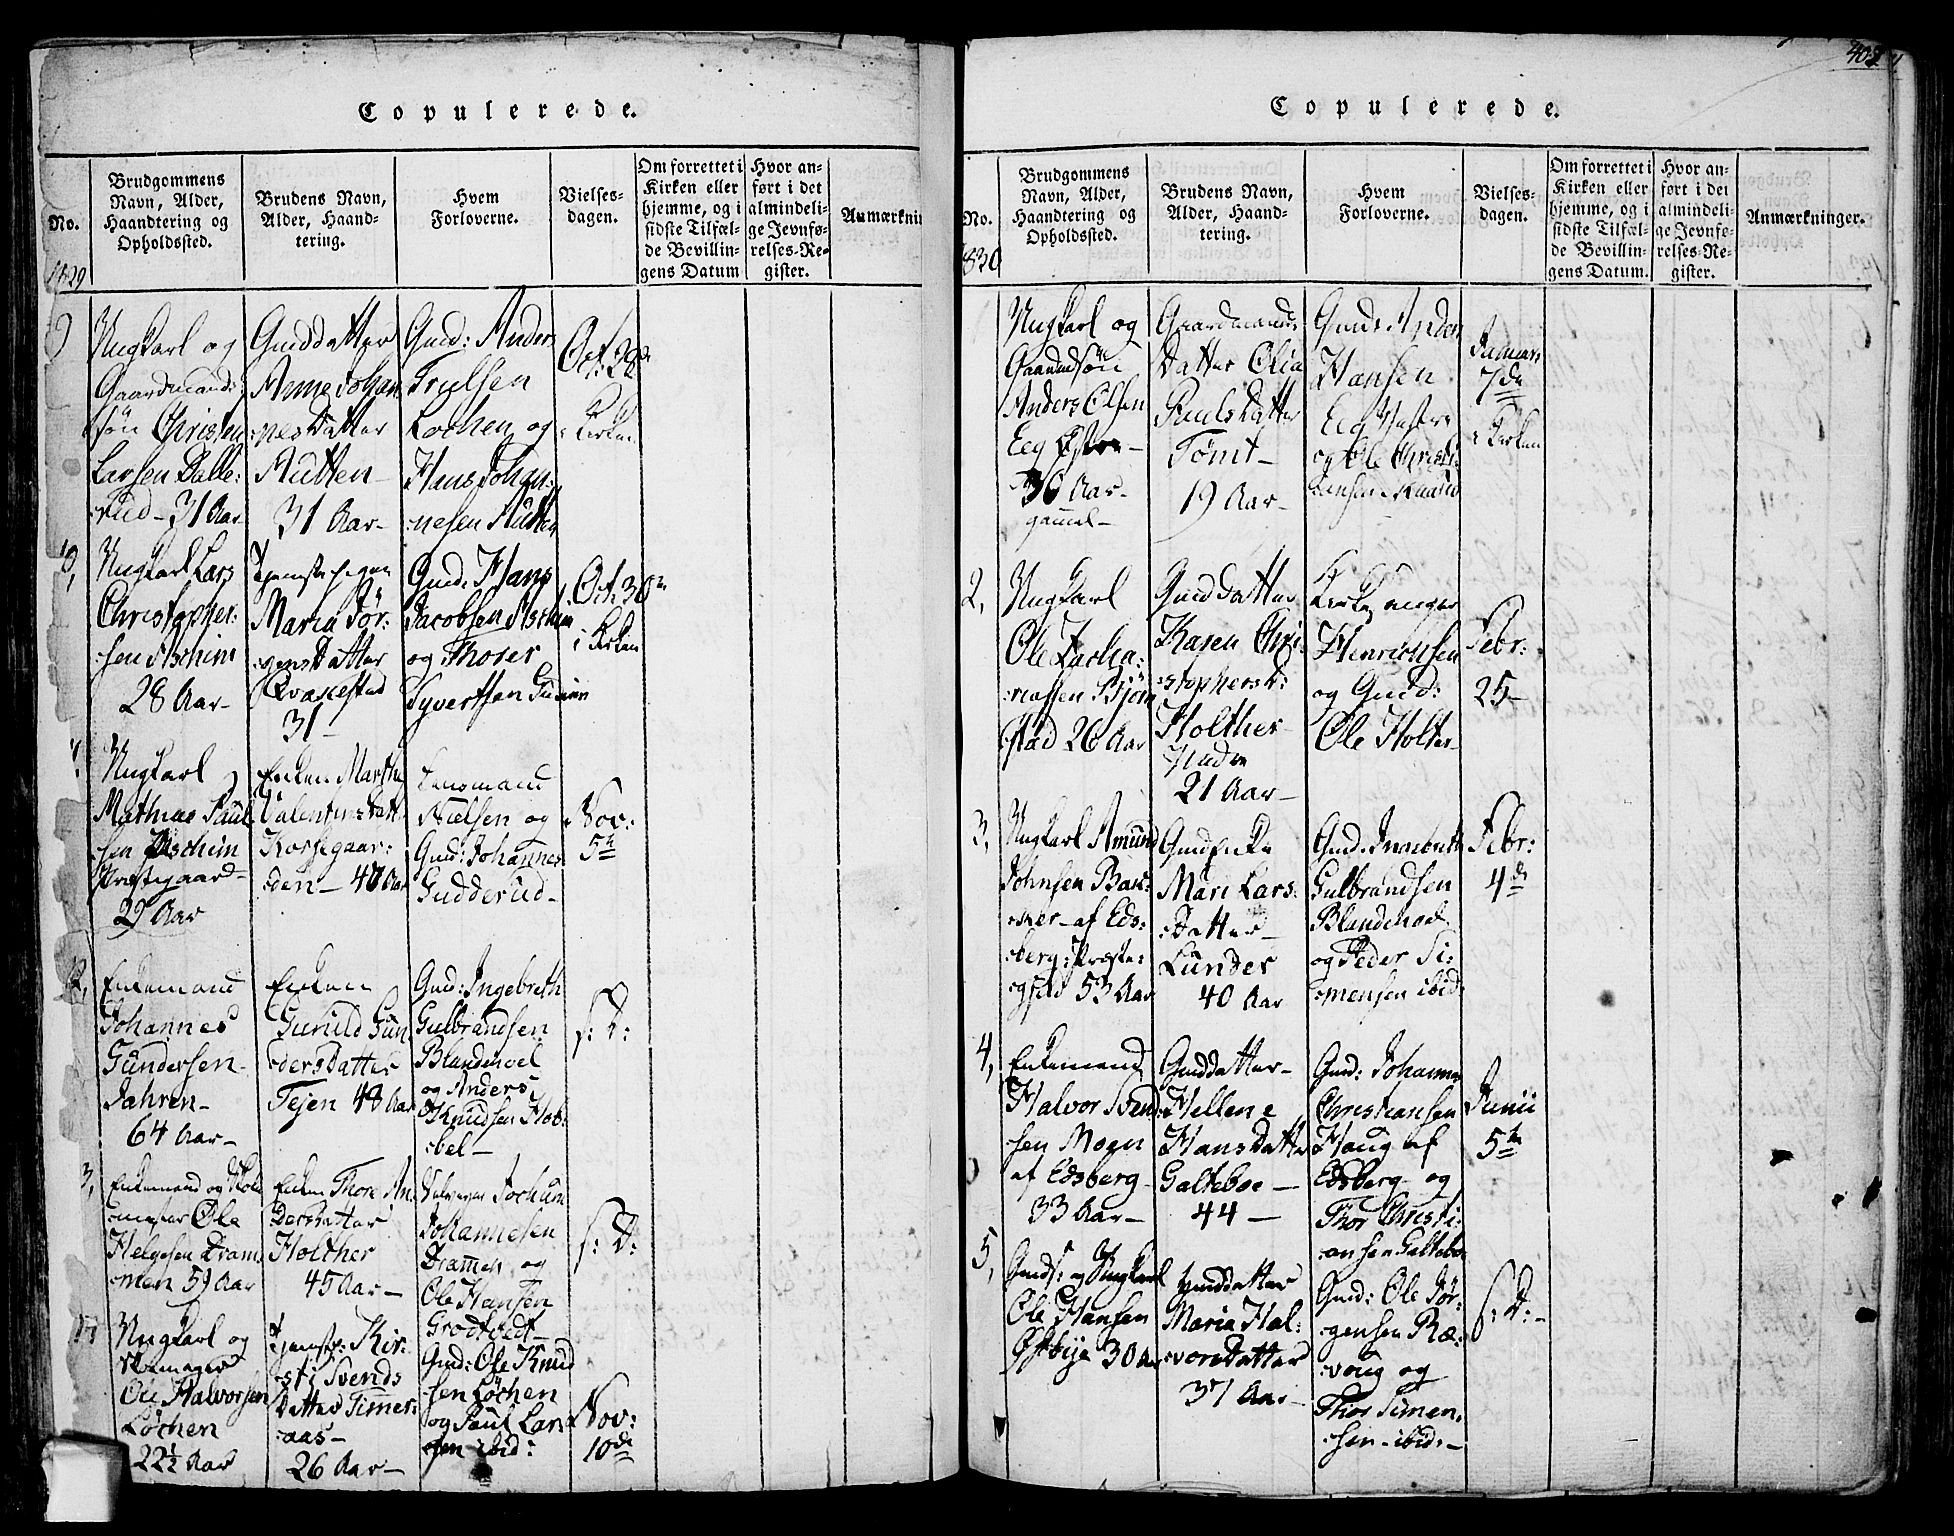 Copulerede.
No.
Brudgommens
Navn, Alder,
Haandtering og
Opholdssted.
Brudens Navn,
Alder, Haand-
tering.
Hvem
Forloverne.
Vielses-
dagen.
Om forrettet i
Kirken eller
hjemme, og i
sidste Tilfæl-
de Bevillin-
gens Datum
Hvor an-
ført i det
almindeli-
ge Jevnfø-
relses-Re-
gister.
Anmærknin
1829
9
Ungkarl og
Gaardmands
søn Christen
Larsen Dalle:
rud - 31 Aar
Gmddatter
Anne Johan
nesdatter
Rutten
31 Aar-
Gmd: Anders
Trulsen
Løchen og
Hans Johan:
nesen Rutten
Oct: 22de
i Kirken
10,
Ungkarl Lars
Christopher:
sen Aschim
28 Aar-
Tjenestepigen
Maria Jør:
gensdatter
Qvakestad
31-
Gmd: Hans
Jacobsen Aschim
og Thorer
Syvertsen
Oct: 30te
i Kirken
Ungkarl
Mathias Paul
sen Aschim
Præstegaard-
29 Aar
Enken Marthe
Valentinsdatt
Korsegaar:
den - 40 Aar
Lensmand
Nielsen og
Gmd: Johannes
Gudderud-
Nov:
5te
12,
Enkemand
Johannes
Gundersen
Jahren-
64 Aar-
Enken
Guruld Gun
dersdatter
Tejen 48 Aar
Gmd: Ingebreth
Gulbrandsen
Blandehoel
og Anders
Knudsen Hob:
bel-
s: D:
3,
Enkemand og Skole
mester Ole
Helgesen Dram
men 59 Aar
Enken Thore An
dersdatter
Holther
45 Aar-
Jochum
Johannesen
Drammen og
Ole Hansen
Grodtvedt-
s: D:
14
Ungkarl og
Skomager
Ole Halvorsen
Løchen
22½ Aar
Tjenestp: Kir
sti Svends
datter Timer:
aas-
26 Aar-
Gmd: Ole Knud
sen Løchen
og Paul Lar
sen ibid:
Nov:
10de
Copulerede.
No.
Brudgommens
Navn, Alder,
Haandtering og
Opholdssted.
Brudens Navn,
Alder, Haand-
tering.
Hvem
Forloverne.
Vielses-
dagen.
Om forrettet i
Kirken eller
hjemme, og i
sidste Tilfæl-
de Bevillin-
gens Datum.
Hvor an-
ført i det
almindeli-
ge Jevnfø-
relses-Re-
gister.
Anmærkninger.
1830
Ungkarl og
Gaardmdsøn
Anders Olsen
Eeg Østre-
30 Aar-
gammel-
Gaardmands
Datter Olia
Paulsdatter
Tømt-
19 Aar-
Gmd: Anders
Hansen
Eeg Vestre
og Ole Christi
ensen
Januar:
7de
i Kirken
2,
Ungkarl
Ole Zacha:
riassen Bjørn
stad 26 Aar
Gmddatter
Karen Chri
stophersd:
Holther
Nedre
21 Aar-
Kirkesanger
Henrichsen
og Gmd:
Ole Holter
Febr:
25-
3,
Ungkarl Amund
Johnsen
af Eds:
berg: Præste:
gjeld 53 Aar
Gmdsenke
Mari Lars:
datter
Lunder
40 Aar
Gmd: Ingebreth
Gulbrandsen
Blandehoel
og Peder Si:
mensen ibid:
Febr:
4de
4,
Enkemand
Halvor Svend
sen Moen
af Edsberg-
33 Aar-
Gmddatter-
Hellene
Hansdatter
Galteboe-
44-
Gmd: Johannes
Christiansen
Haug af
Edsberg og
Thor Christi:
ansen Galteboe
Junii
5te
5,
Gmds: og Ungkarl
Ole Hansen
Østbye 30 Aar
Gmddatter
Maria Hal:
vorsdatter
37 Aar-
Gmd: Ole Jør:
gensen Ræ:
voug og
Thor Simen
sen ibid:-
s: D:-